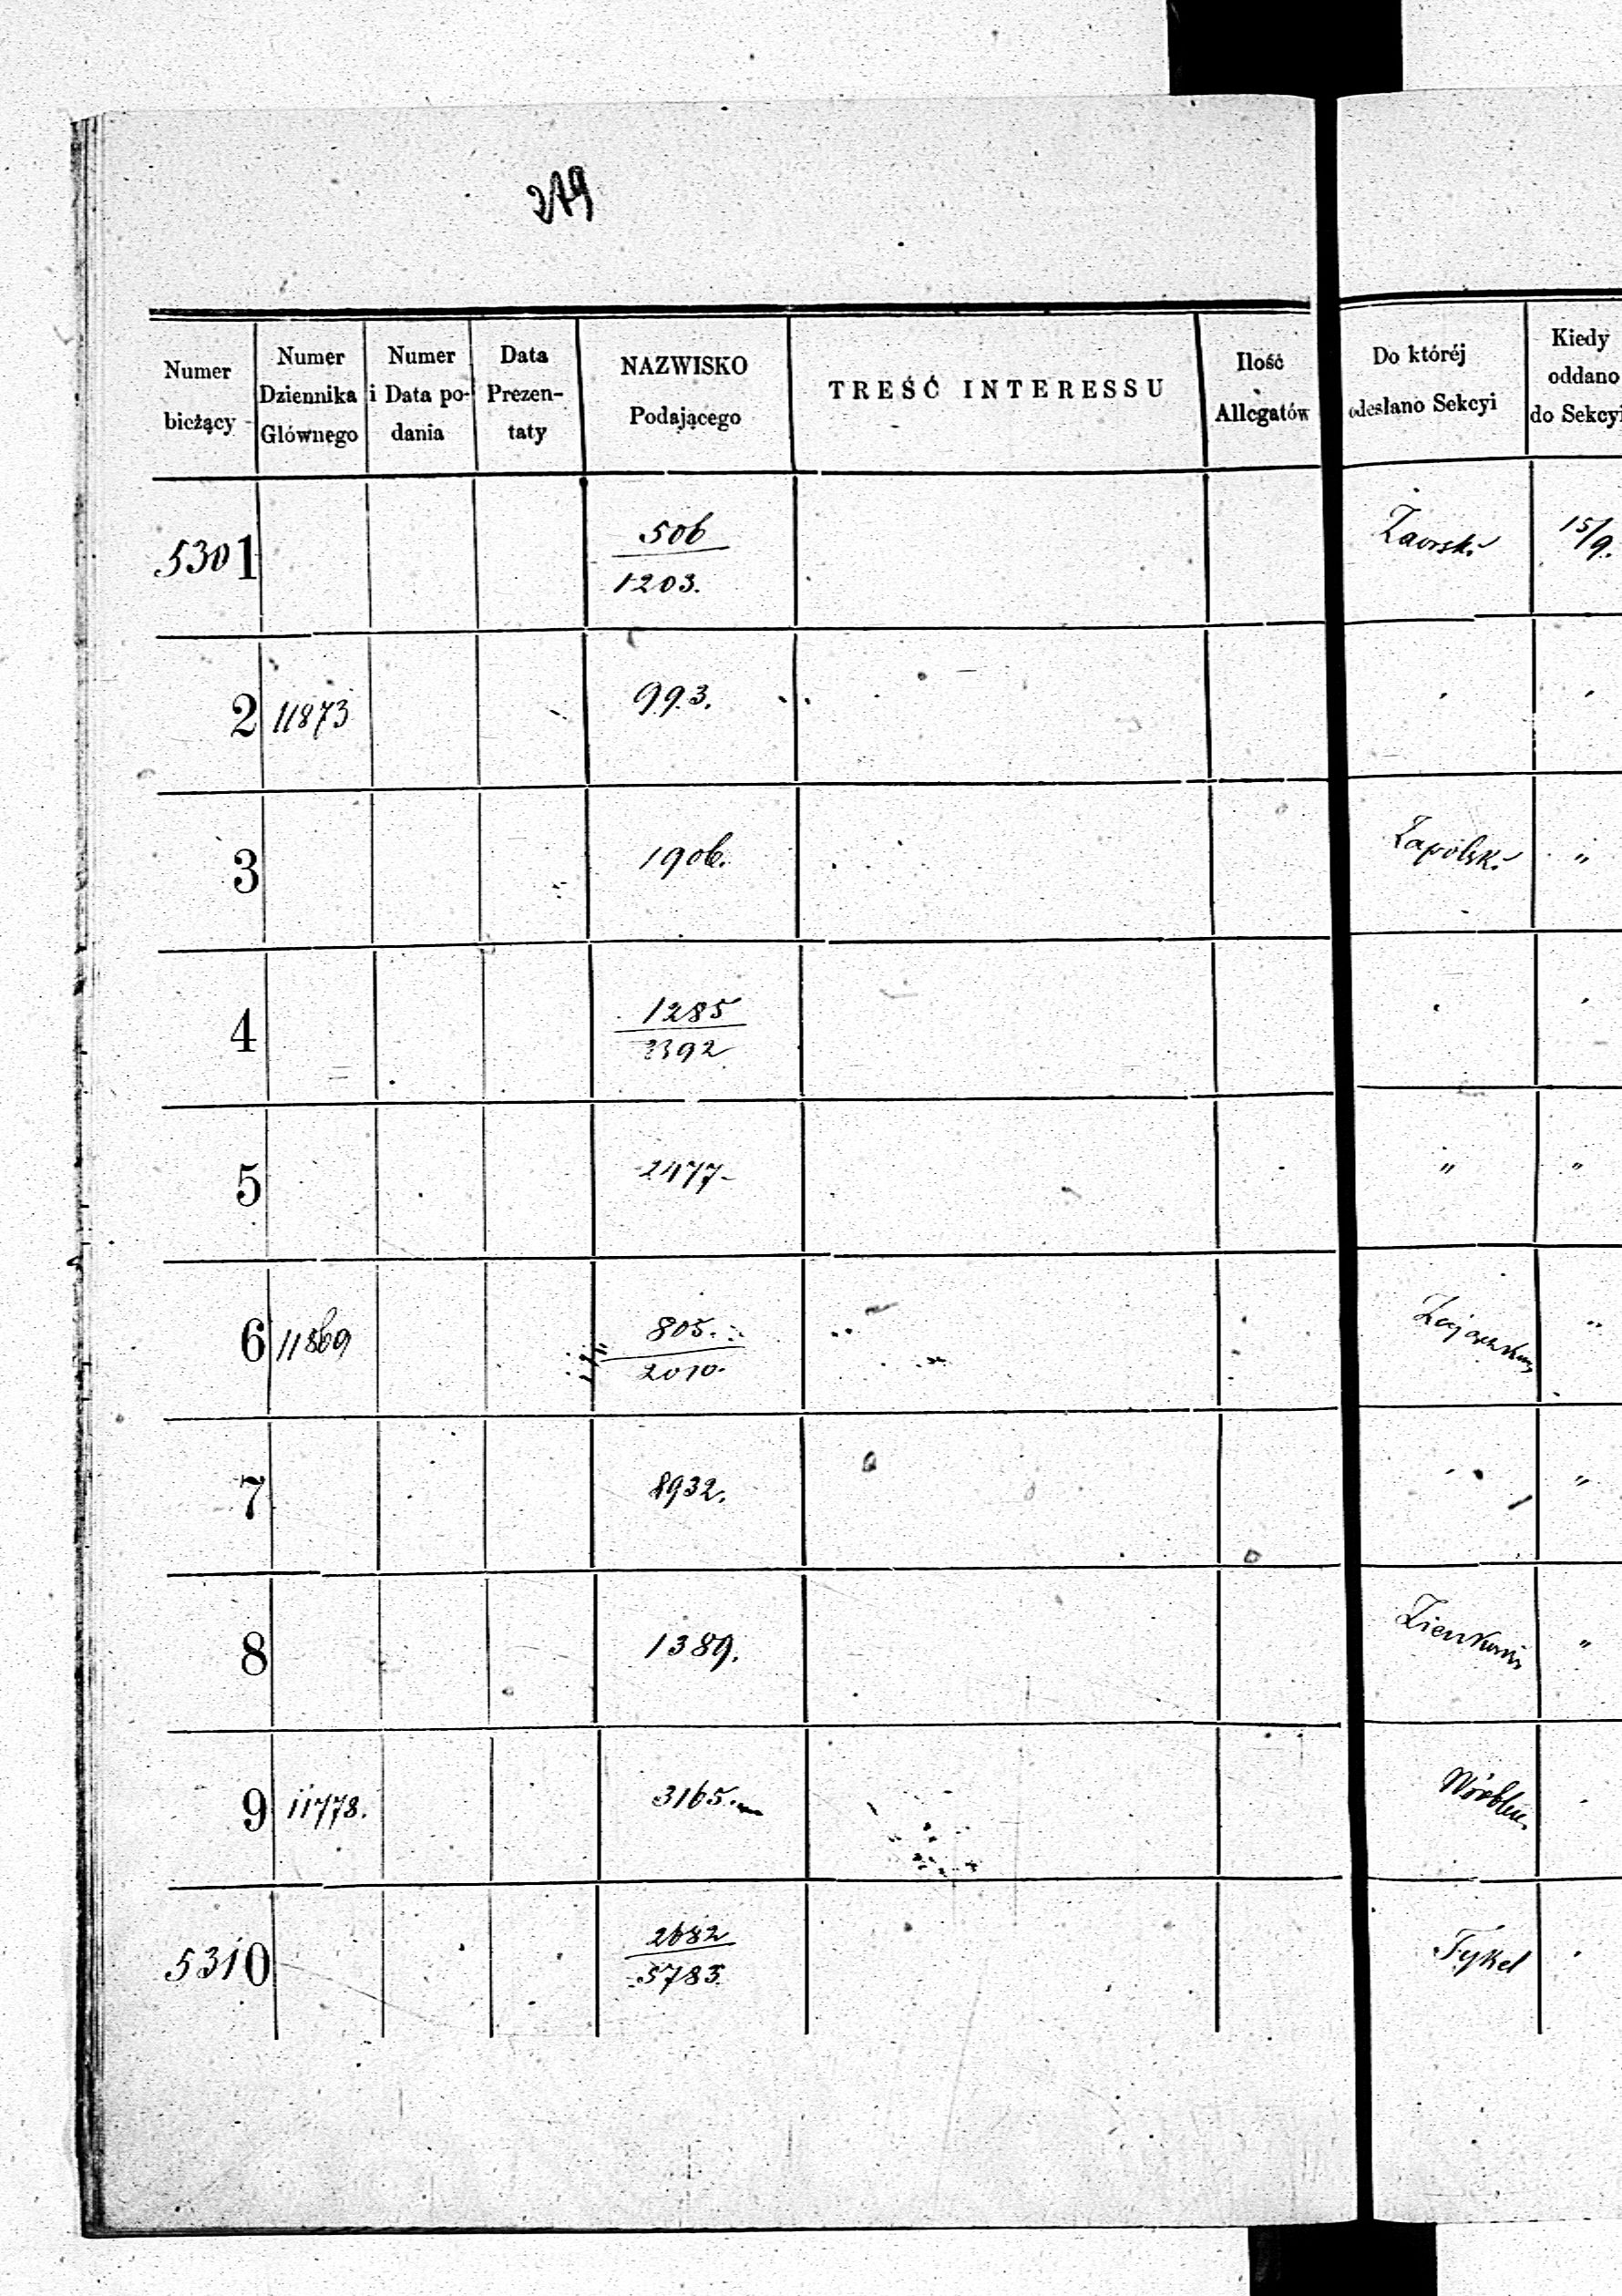 279
Numer bieżący Numer Dziennika Głównego Numer i Data podania Data Prezentaty NAZWISKO Podającego TREŚĆ INTERESSU Ilość Allegatów Do któréj odesłano Sekcyi Kiedy oddano do Sekcyi
5301 506/1203. 15/9.
2 11873 993. " "
3 1906. Zapolsk. "
4 1285/3392 " "
5 2477- " "
6 11869 805./2010. "
7 8932. " "
8 1389. "
9 11778. 3165. "
5310 2682/5783. Tykel "